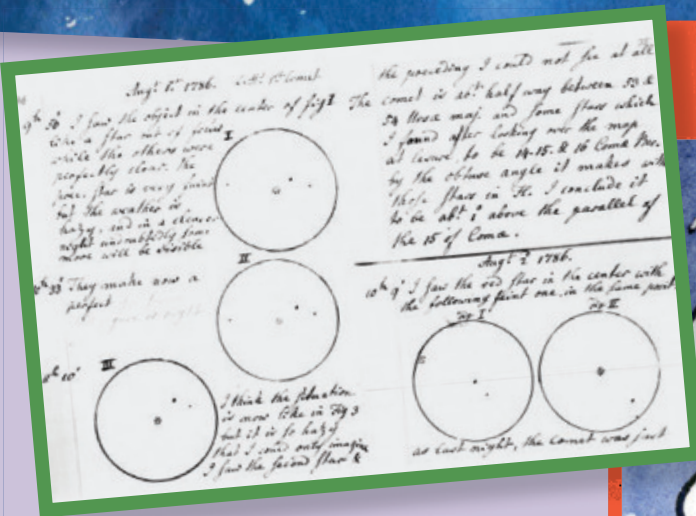 Augt 1st 1786. 1st Comet
9h 50' I saw the object in the center of fig I
like a star out of focus
while the others were
perfectly clear. The
prec. star is very faint
but the weather is
hazy, and in a clearer
night undoubtedly some
more will be visible
I
II
10h 33' They make now a
perfect
III
I think the situation
is now like in Fig 3
but it is so hazy
that I could only imagine
I saw the second star &
the preceding I could not see at all
The comet is abt half way between 53 &
54 Ursa maj. and some stars which
I found after looking over the map
at leisure, to be 14. 15. & 16 Coma Ber.
by the obtuse angle it makes with
those stars in Fl. I conclude it
to be abt 1° above the parallel of
the 15 of Coma.
Augt 2d 1786.
10h 9' I saw the red star in the center with
the following faint one, in the same posit
Fig I
Fig II
as last night, the comet was just